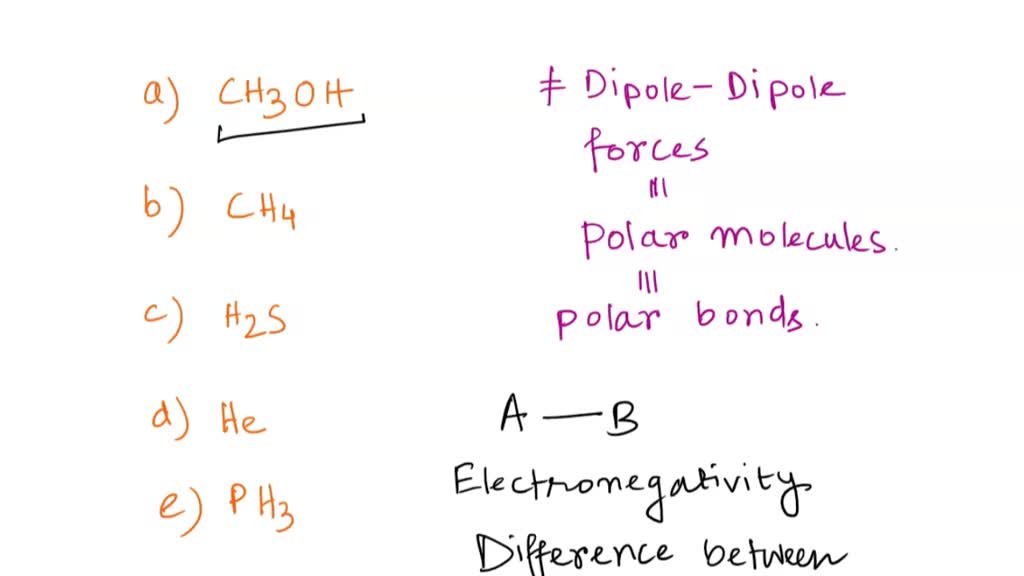 a) CH3OH
b) CH4
c) H2S
d) He
e) PH3
≠ Dipole-Dipole
forces
III
Polar molecules.
III
polar bonds.
A — B
Electronegativity
Difference between